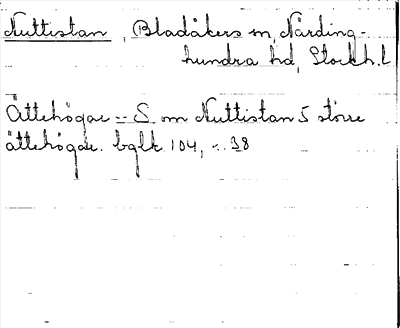 Nuttistan, Bladåkers sn, Närding-
hundra hd, Stockh. L
Ättehögar -- S om Nuttistan 5 större
ättehögar. bglk 104, s. 38